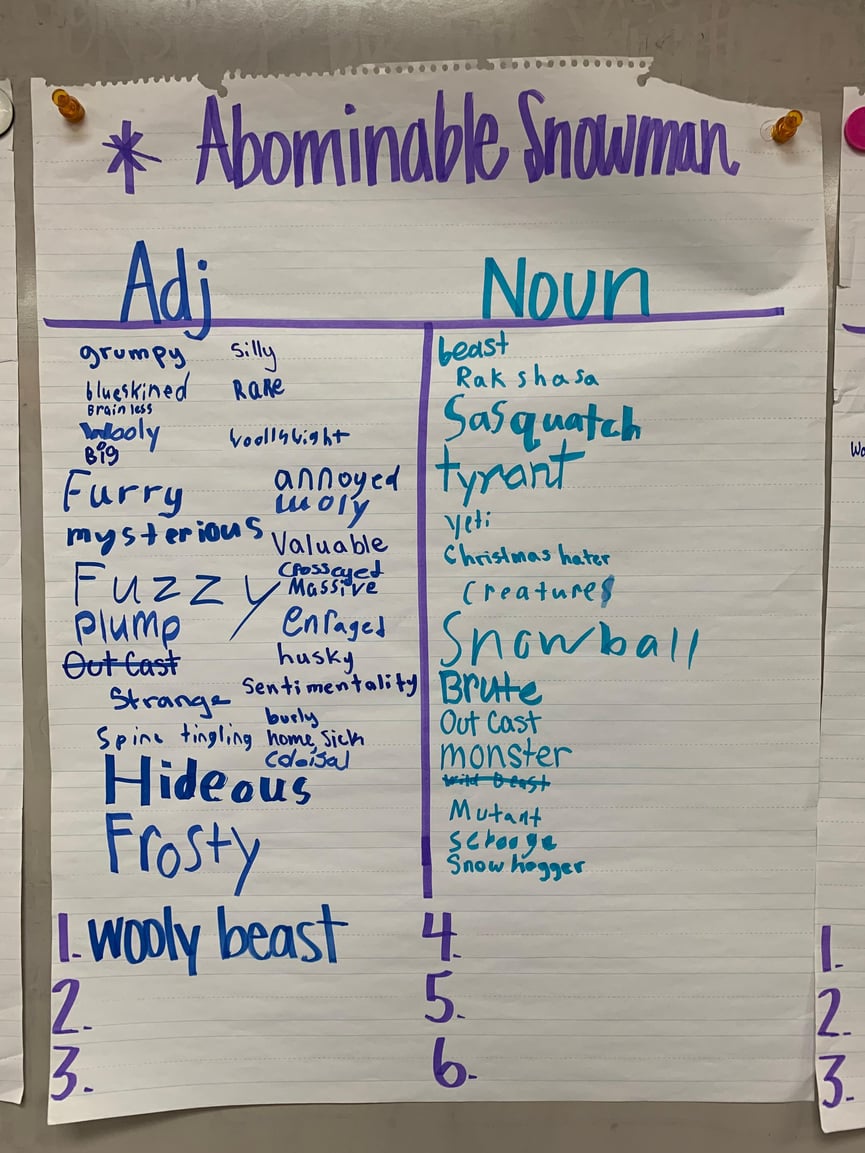 * Abominable Snowman
Adj
grumpy silly
blueskined Rare
Brain less
Wooly
Big
Furry annoyed
woly
mysterious Valuable
Crosseyed
Fuzzy Massive
Plump enraged
Out Cast husky
Strange Sentimentality
burly
Spine tingling home sick
Coloisal
Hideous
Frosty
Noun
beast
Rak shasa
Sasquatch
tyrant
yeti
Christmas hater
Creatures
Snowball
Brute
Out Cast
monster
Wild Beast
Mutant
scrooge
Snow hogger
1. wooly beast
2.
3.
4.
5.
6.
Wo
1.
2.
3.